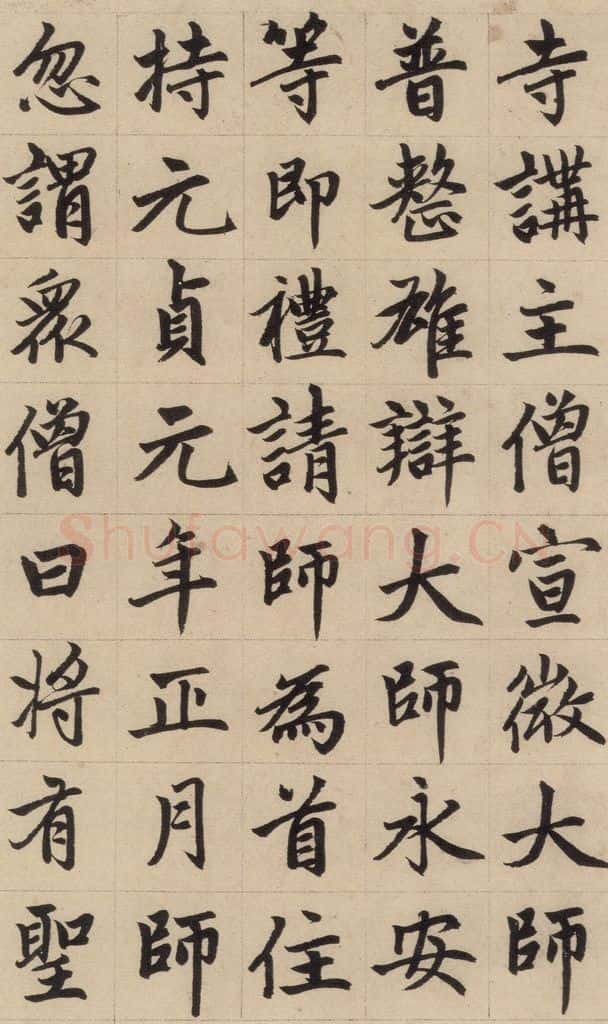 寺講主僧宣微大師
普整雄辯大師永安
等即禮請師為首住
持元貞元年正月師
忽謂眾僧曰將有聖
Shufawang.CN